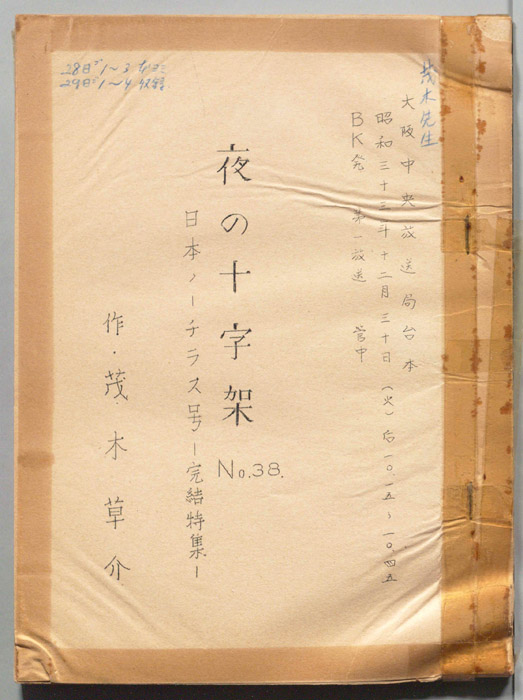 茂木先生
大阪中央放送局台本
昭和三十三年十二月三十日（火）后一〇.一五〜一〇.四五
BK発 第一放送 管中
夜の十字架 No.38.
日本ノーチラス号ー完結特集ー
作・茂木草介
28日 1〜3
29日 1〜4 収録